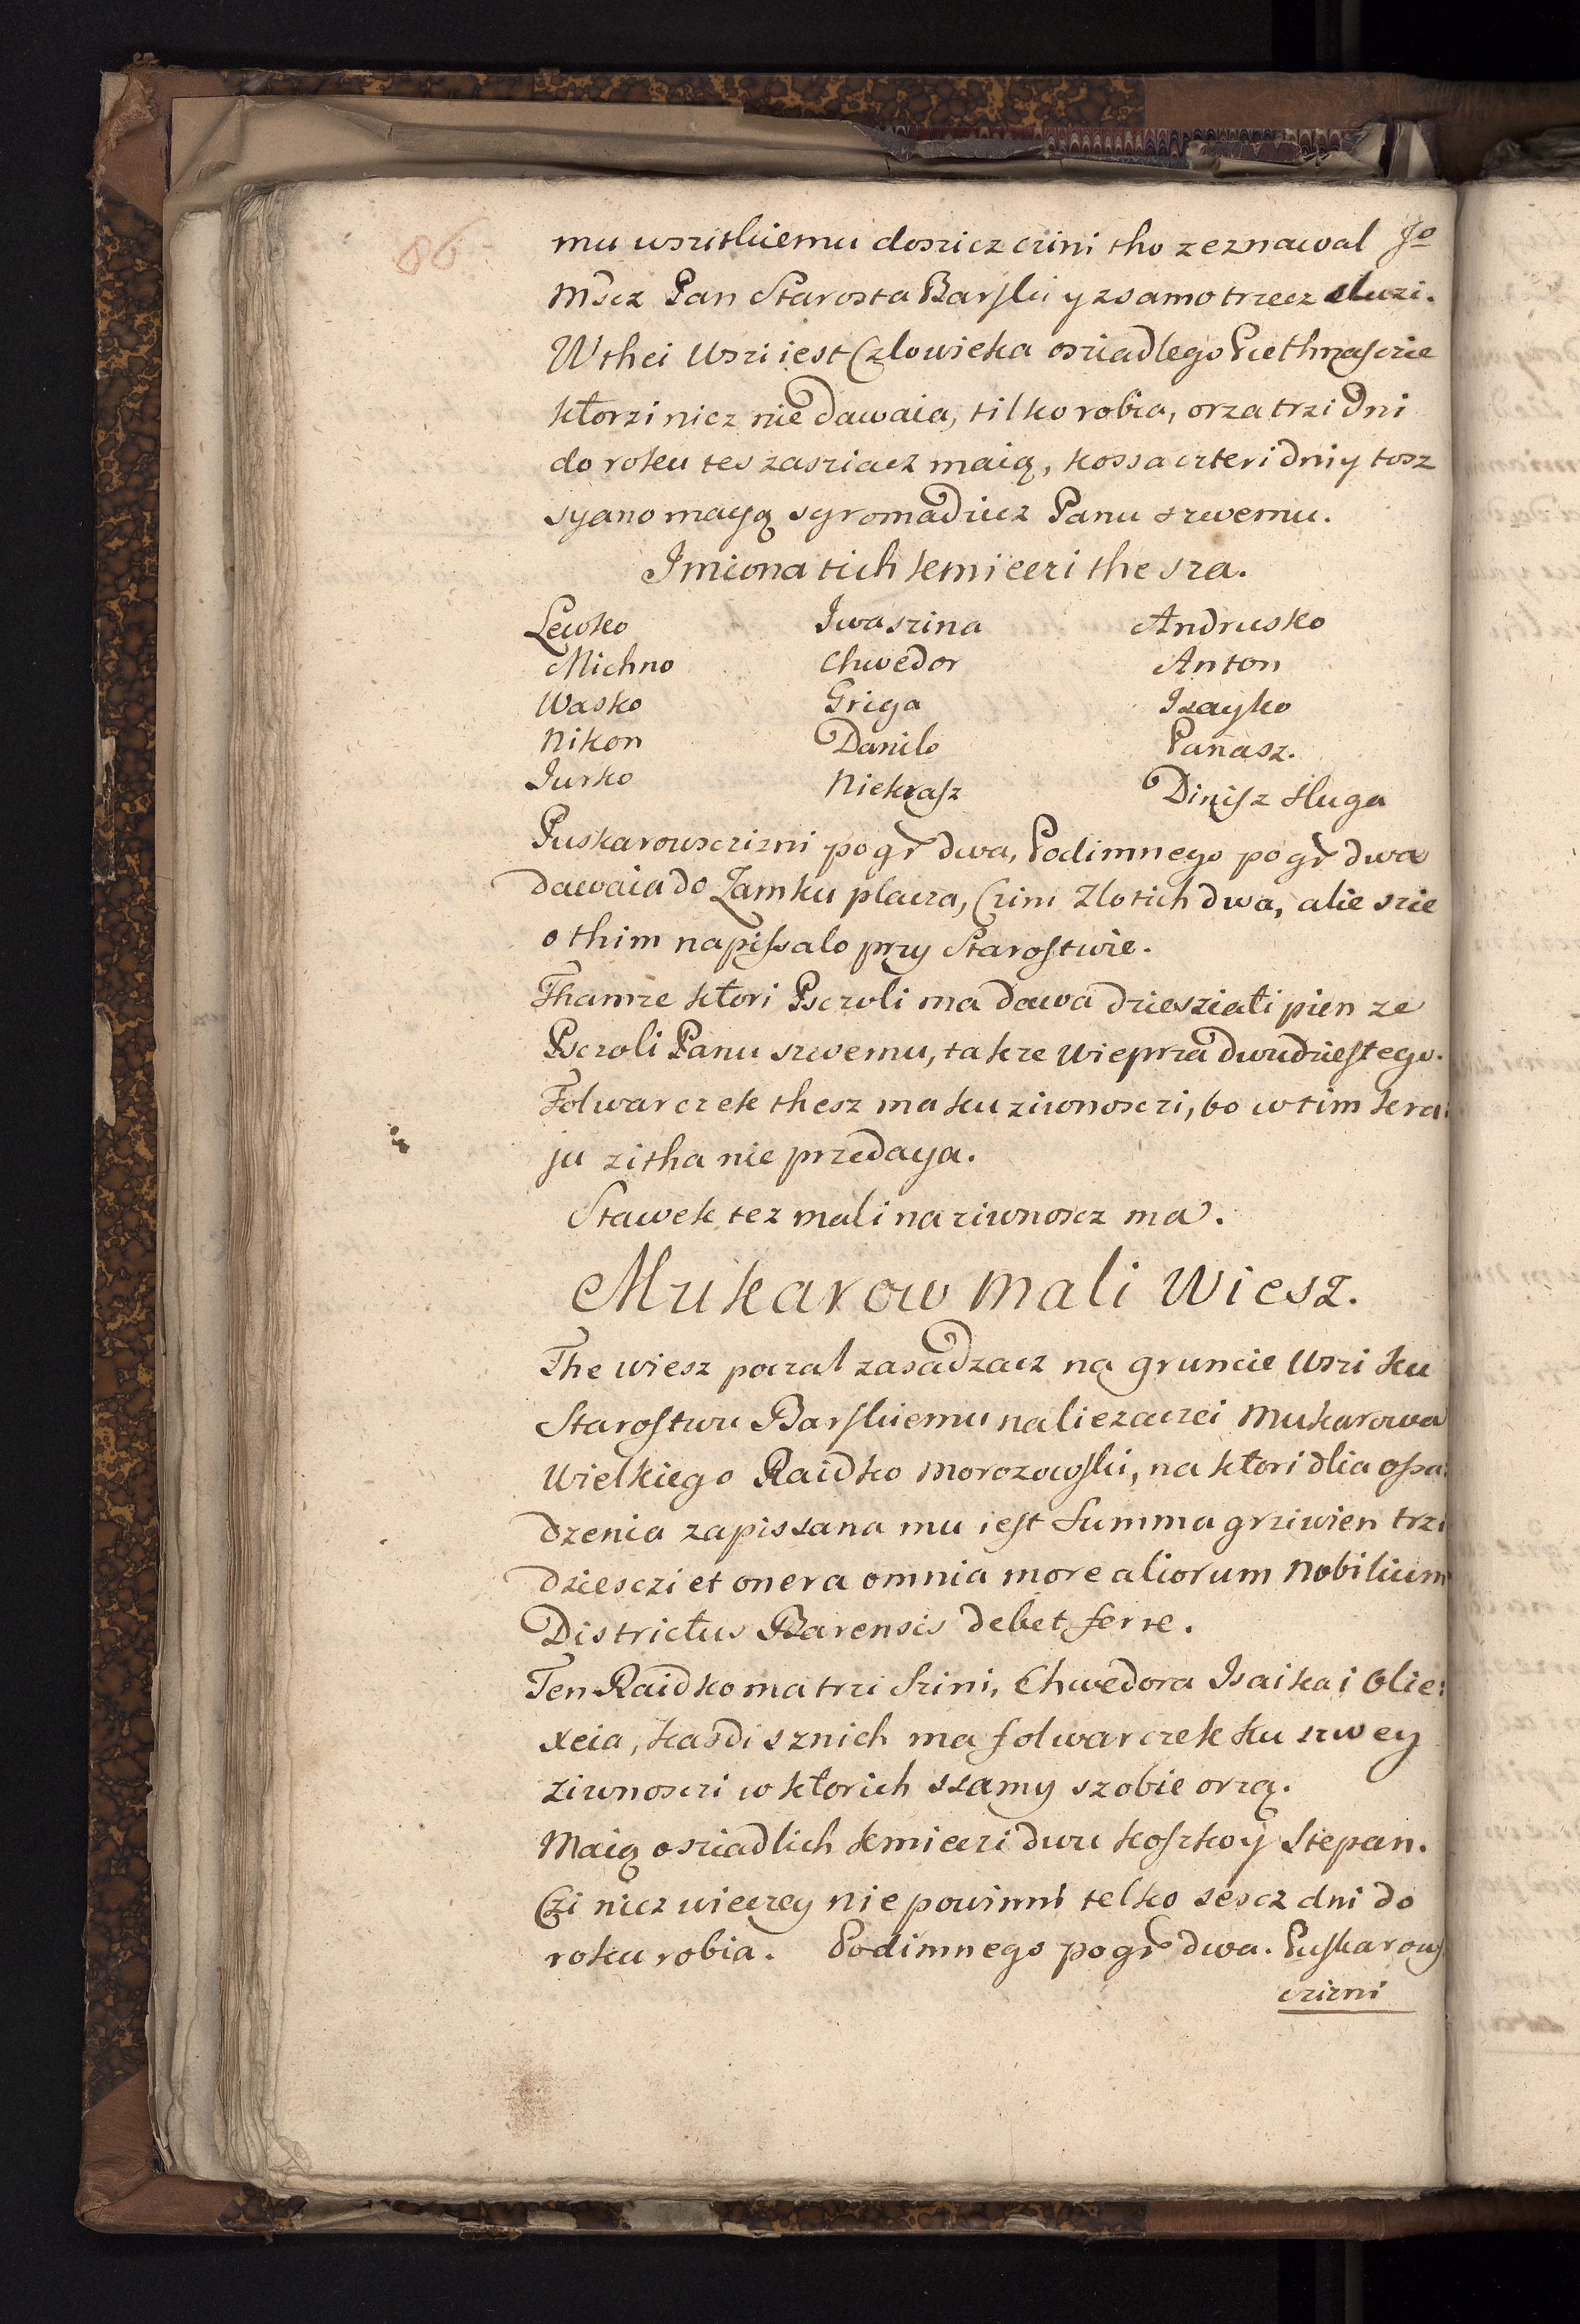 86
mu wszitkiemu dosicz czini tho zeznawal Jo
Mscz Pan Starosta Barski y zsamotrzecz sluzi.
W thei Wszi iest Czlowieka osziadlego Piethnascie
ktorzi nicz nie dawaia, tilko robia, orza trzi Dni
do roku tes zasziacz maią, kossa czteri dni y tosz
syano mayą sgromadzicz Panu szwemu.
Imiona tich kmieczi the sza.
Lewko Iwaszina Andrusko
Michno Chwedor Anton
Wasko Griga Isayko
Nikon Danilo Panasz.
Iurko Niekrasz Dinisz sluga
Puskarowsczizni po gr dwa, Podimnego po gr dwa
dawaia do Zamku placza, Czini Zlotich dwa, alie szie
o thim napissalo przy Starostwie.
Thamze ktori Psczoli ma dawa dziesziati pien ze
Psczoli Panu szwemu, takze Wieprza dwudziestego.
Folwarczek thesz ma ku ziwnosczi, bo w tim kra:
ju zitha nie przedaya.
Stawek tez mali na ziwnoscz ma.
Mukarow mali Wiesz.
The wiesz poczal zasadzacz na gruncie Wszi ku
Starostwu Barskiemu naliezaczei Mukarowa
Wielkiego Raidko Morozowski, na ktori dlia ossa:
dzenia zapissana mu iest Summa grziwien trzi
dziesczi et onera omnia more aliorum Nobilium
Districtus Barensis debet ferre.
Ten Raidko ma trzi Szini, Chwedora Isaika i Olie:
xeia, kasdi sznich ma folwarczek ku szwey
ziwnosczi w ktorich ssamy szobie orzą.
Maią osziadlich kmieczi dwu koszko y Stepan.
Czi nicz wieczey nie powinni telko sescz dni do
roku robia. Podimnego po gr dwa. Puskarows
czizni